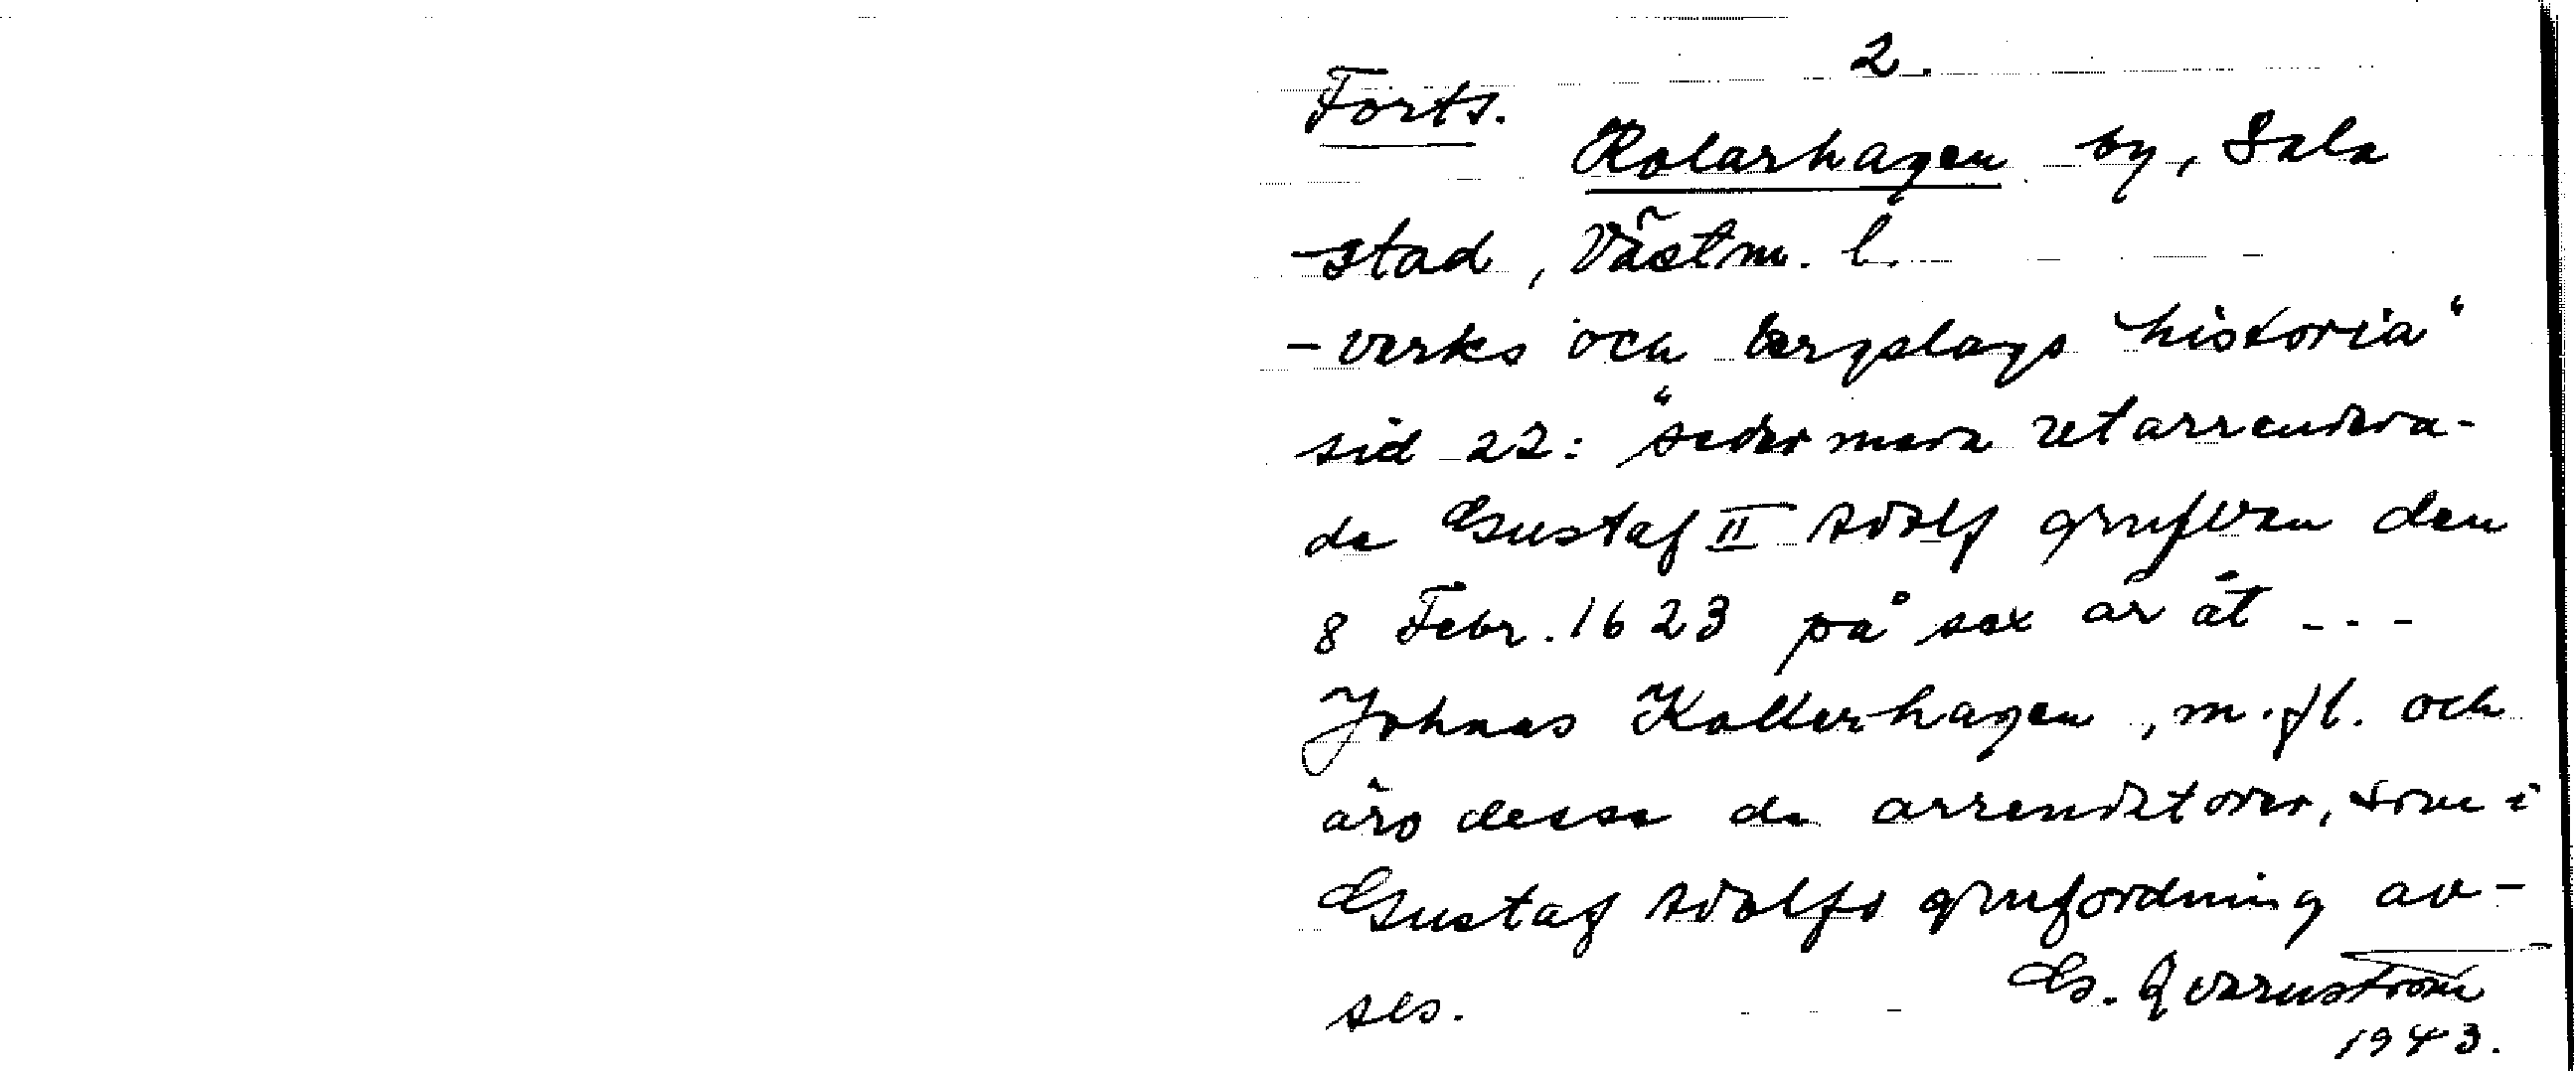 2.
Forts.
Kolarhagen by, Sala
stad, Västm. l.
-verks och bergslags historia"
sid 22: "sedermera utarrendera-
de Gustaf II Adolf grufvan den
8 Febr. 1623 på sex år åt ---
Johnas Kollerhagen, m.fl. och
äro dessa de arrendatorer, som i
Gustaf Adolfs grufordning av-
ses.
G. Qvarnström
1943.